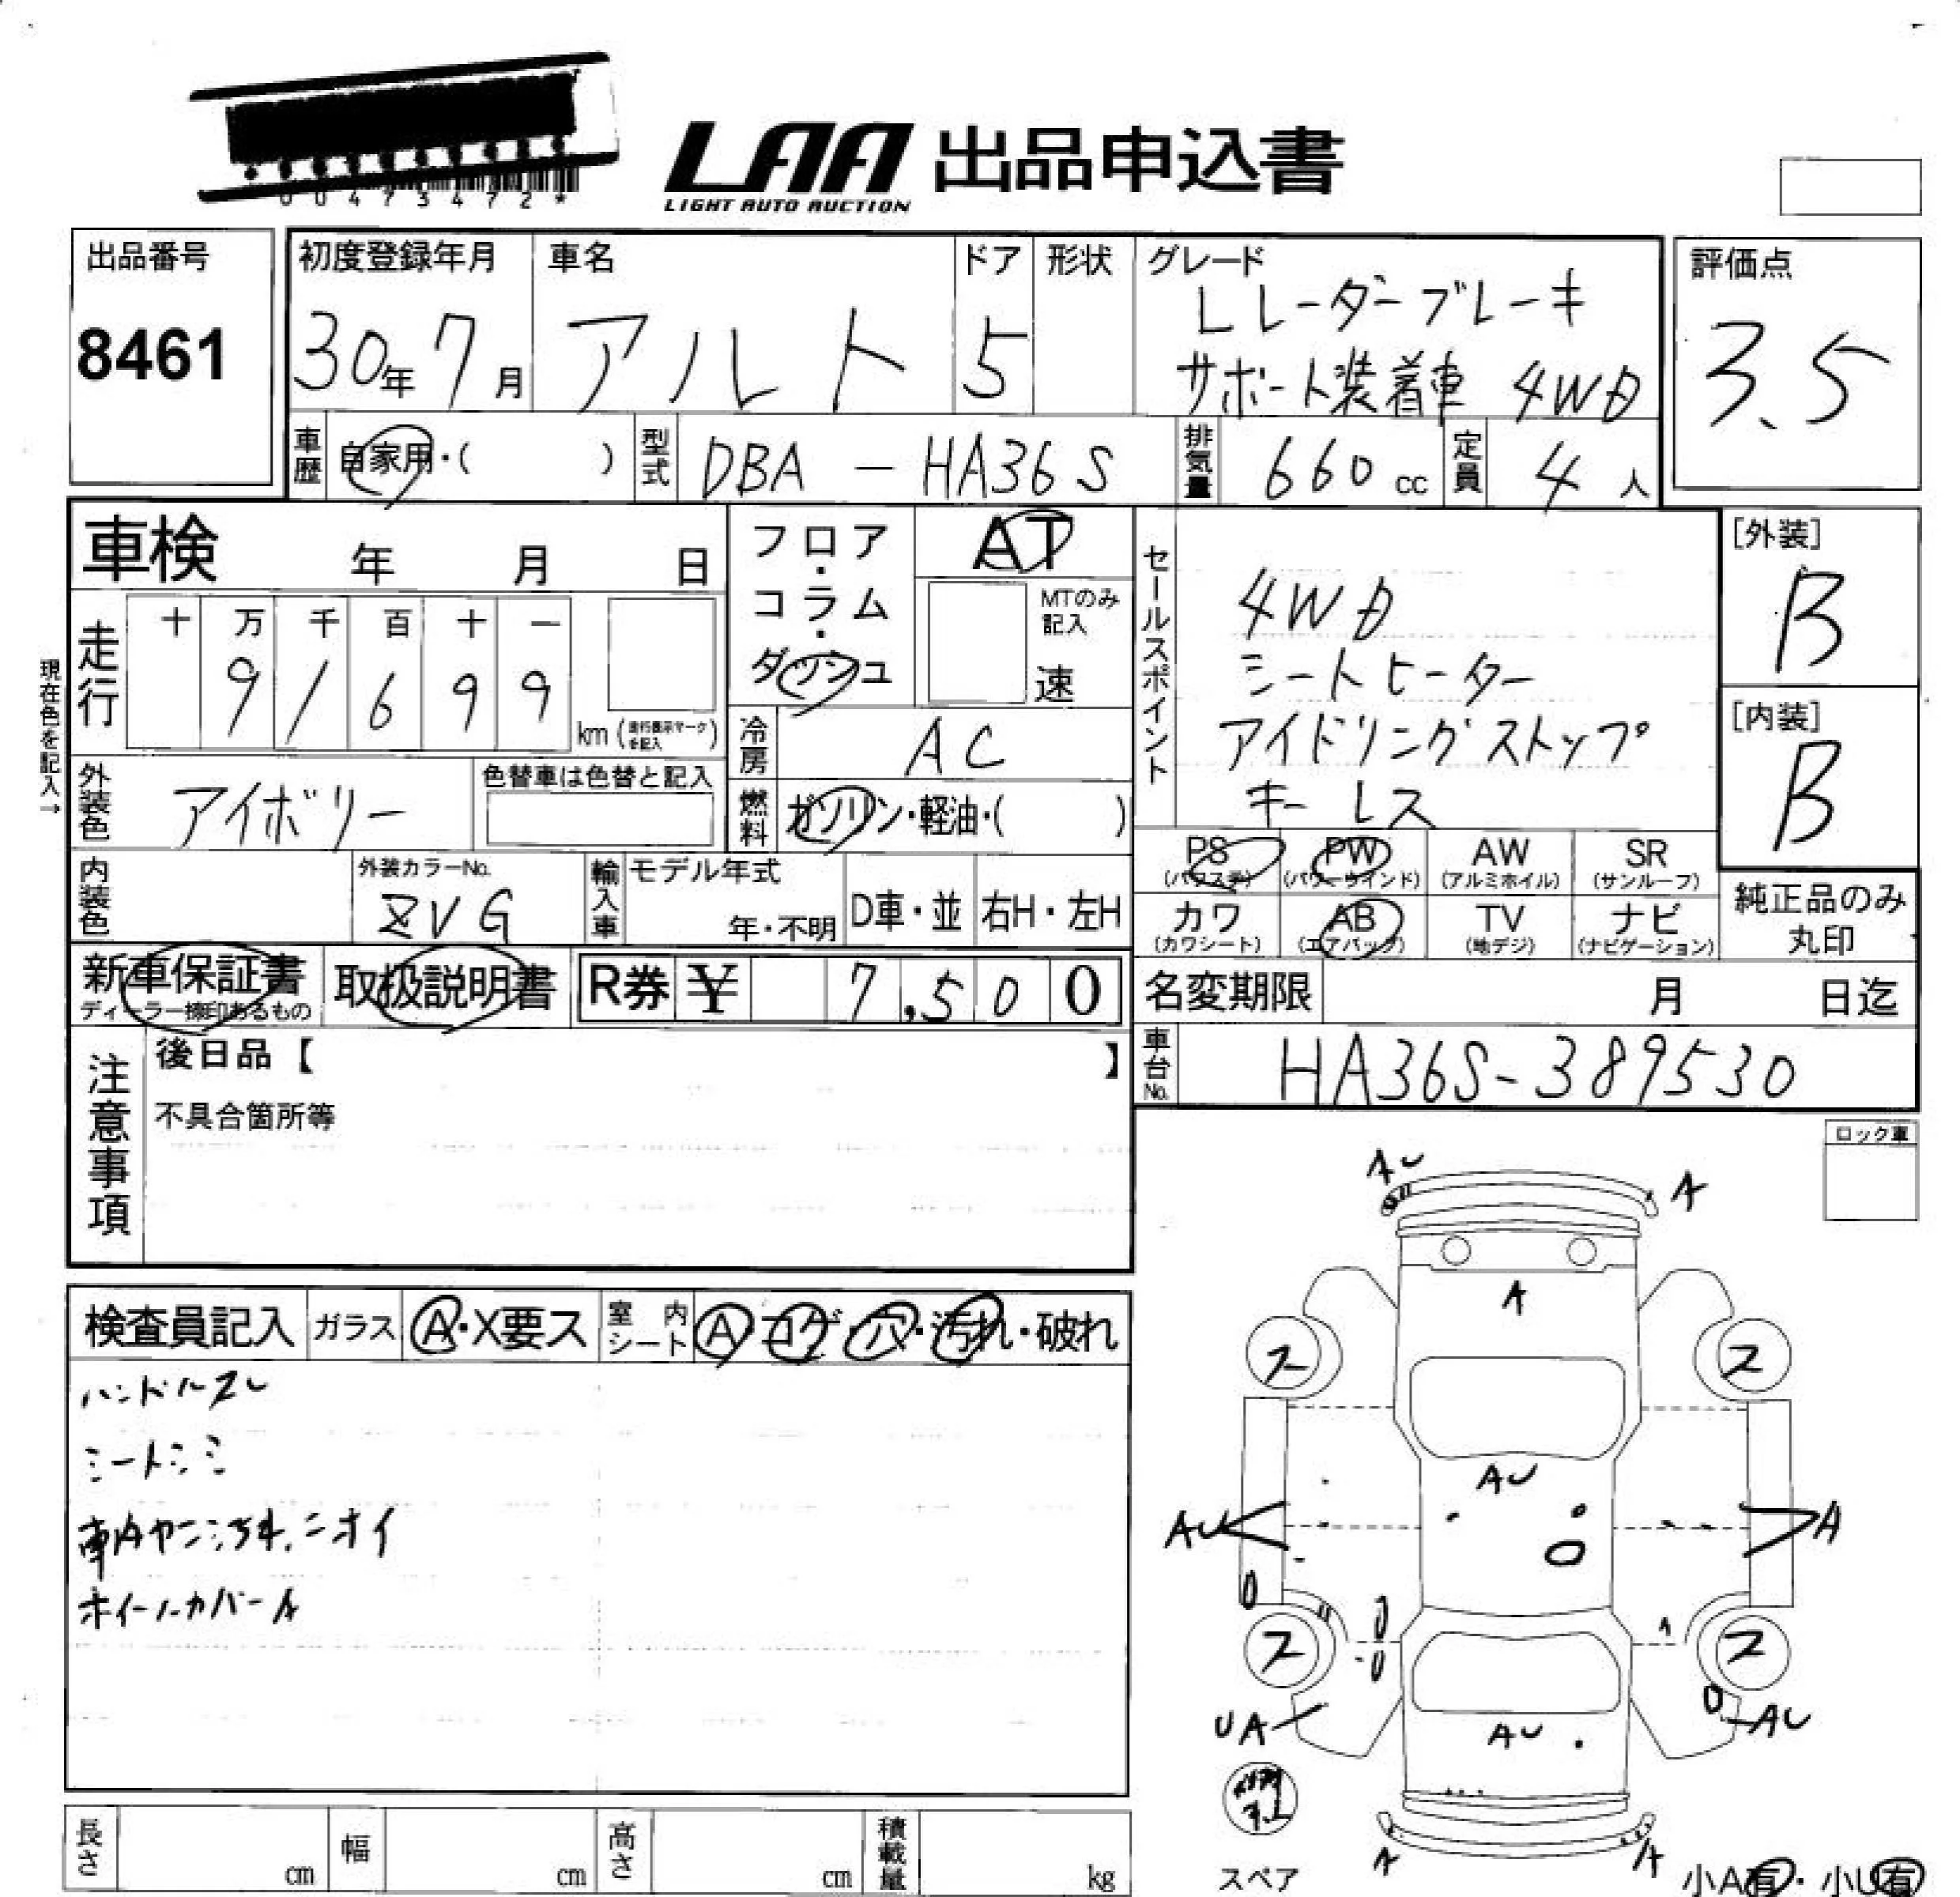 00473472*
LAA 出品申込書
LIGHT AUTO AUCTION
出品番号
8461
初度登録年月
30年7月
車名
アルト
ドア
5
形状
グレード
Lレーダーブレーキ
サポート装着車 4WD
評価点
3.5
車歴
自家用・( )
型式
DBA-HA36S
排気量
660cc
定員
4人
車検 年 月 日
フロア・コラム・ダッシュ
AT
MTのみ記入
速
セールスポイント
4WD
シートヒーター
アイドリングストップ
キーレス
[外装]
B
[内装]
B
現在色を記入→
走行
十 万 千 百 十 一
9 1 6 9 9
km (走行表示マークを記入)
冷房
AC
外装色
アイボリー
色替車は色替と記入
燃料
ガソリン・軽油・( )
PS (パワステ)
PW (パワーウインド)
AW (アルミホイル)
SR (サンルーフ)
カワ (カワシート)
AB (エアバッグ)
TV (地デジ)
ナビ (ナビゲーション)
純正品のみ
丸印
内装色
外装カラーNo.
ZVG
輸入車
モデル年式
年・不明
D車・並
右H・左H
新車保証書
ディーラー捺印あるもの
取扱説明書
R券 ¥ 7,500
名変期限 月 日迄
車台No.
HA36S-389530
注意事項
後日品【 】
不具合箇所等
ロック車
検査員記入
ガラス
A・X要ス
室内シート
A・コゲ・穴・汚れ・破れ
ハンドルスレ
シートシミ
車内ヤニ汚れ、ニオイ
ホイールカバーA
AU
A
A
ス
ス
AU
AU
A
ス
ス
UA
AU
AU
A
A
スペア
小A有・小U有
長さ cm
幅 cm
高さ cm
積載量 kg